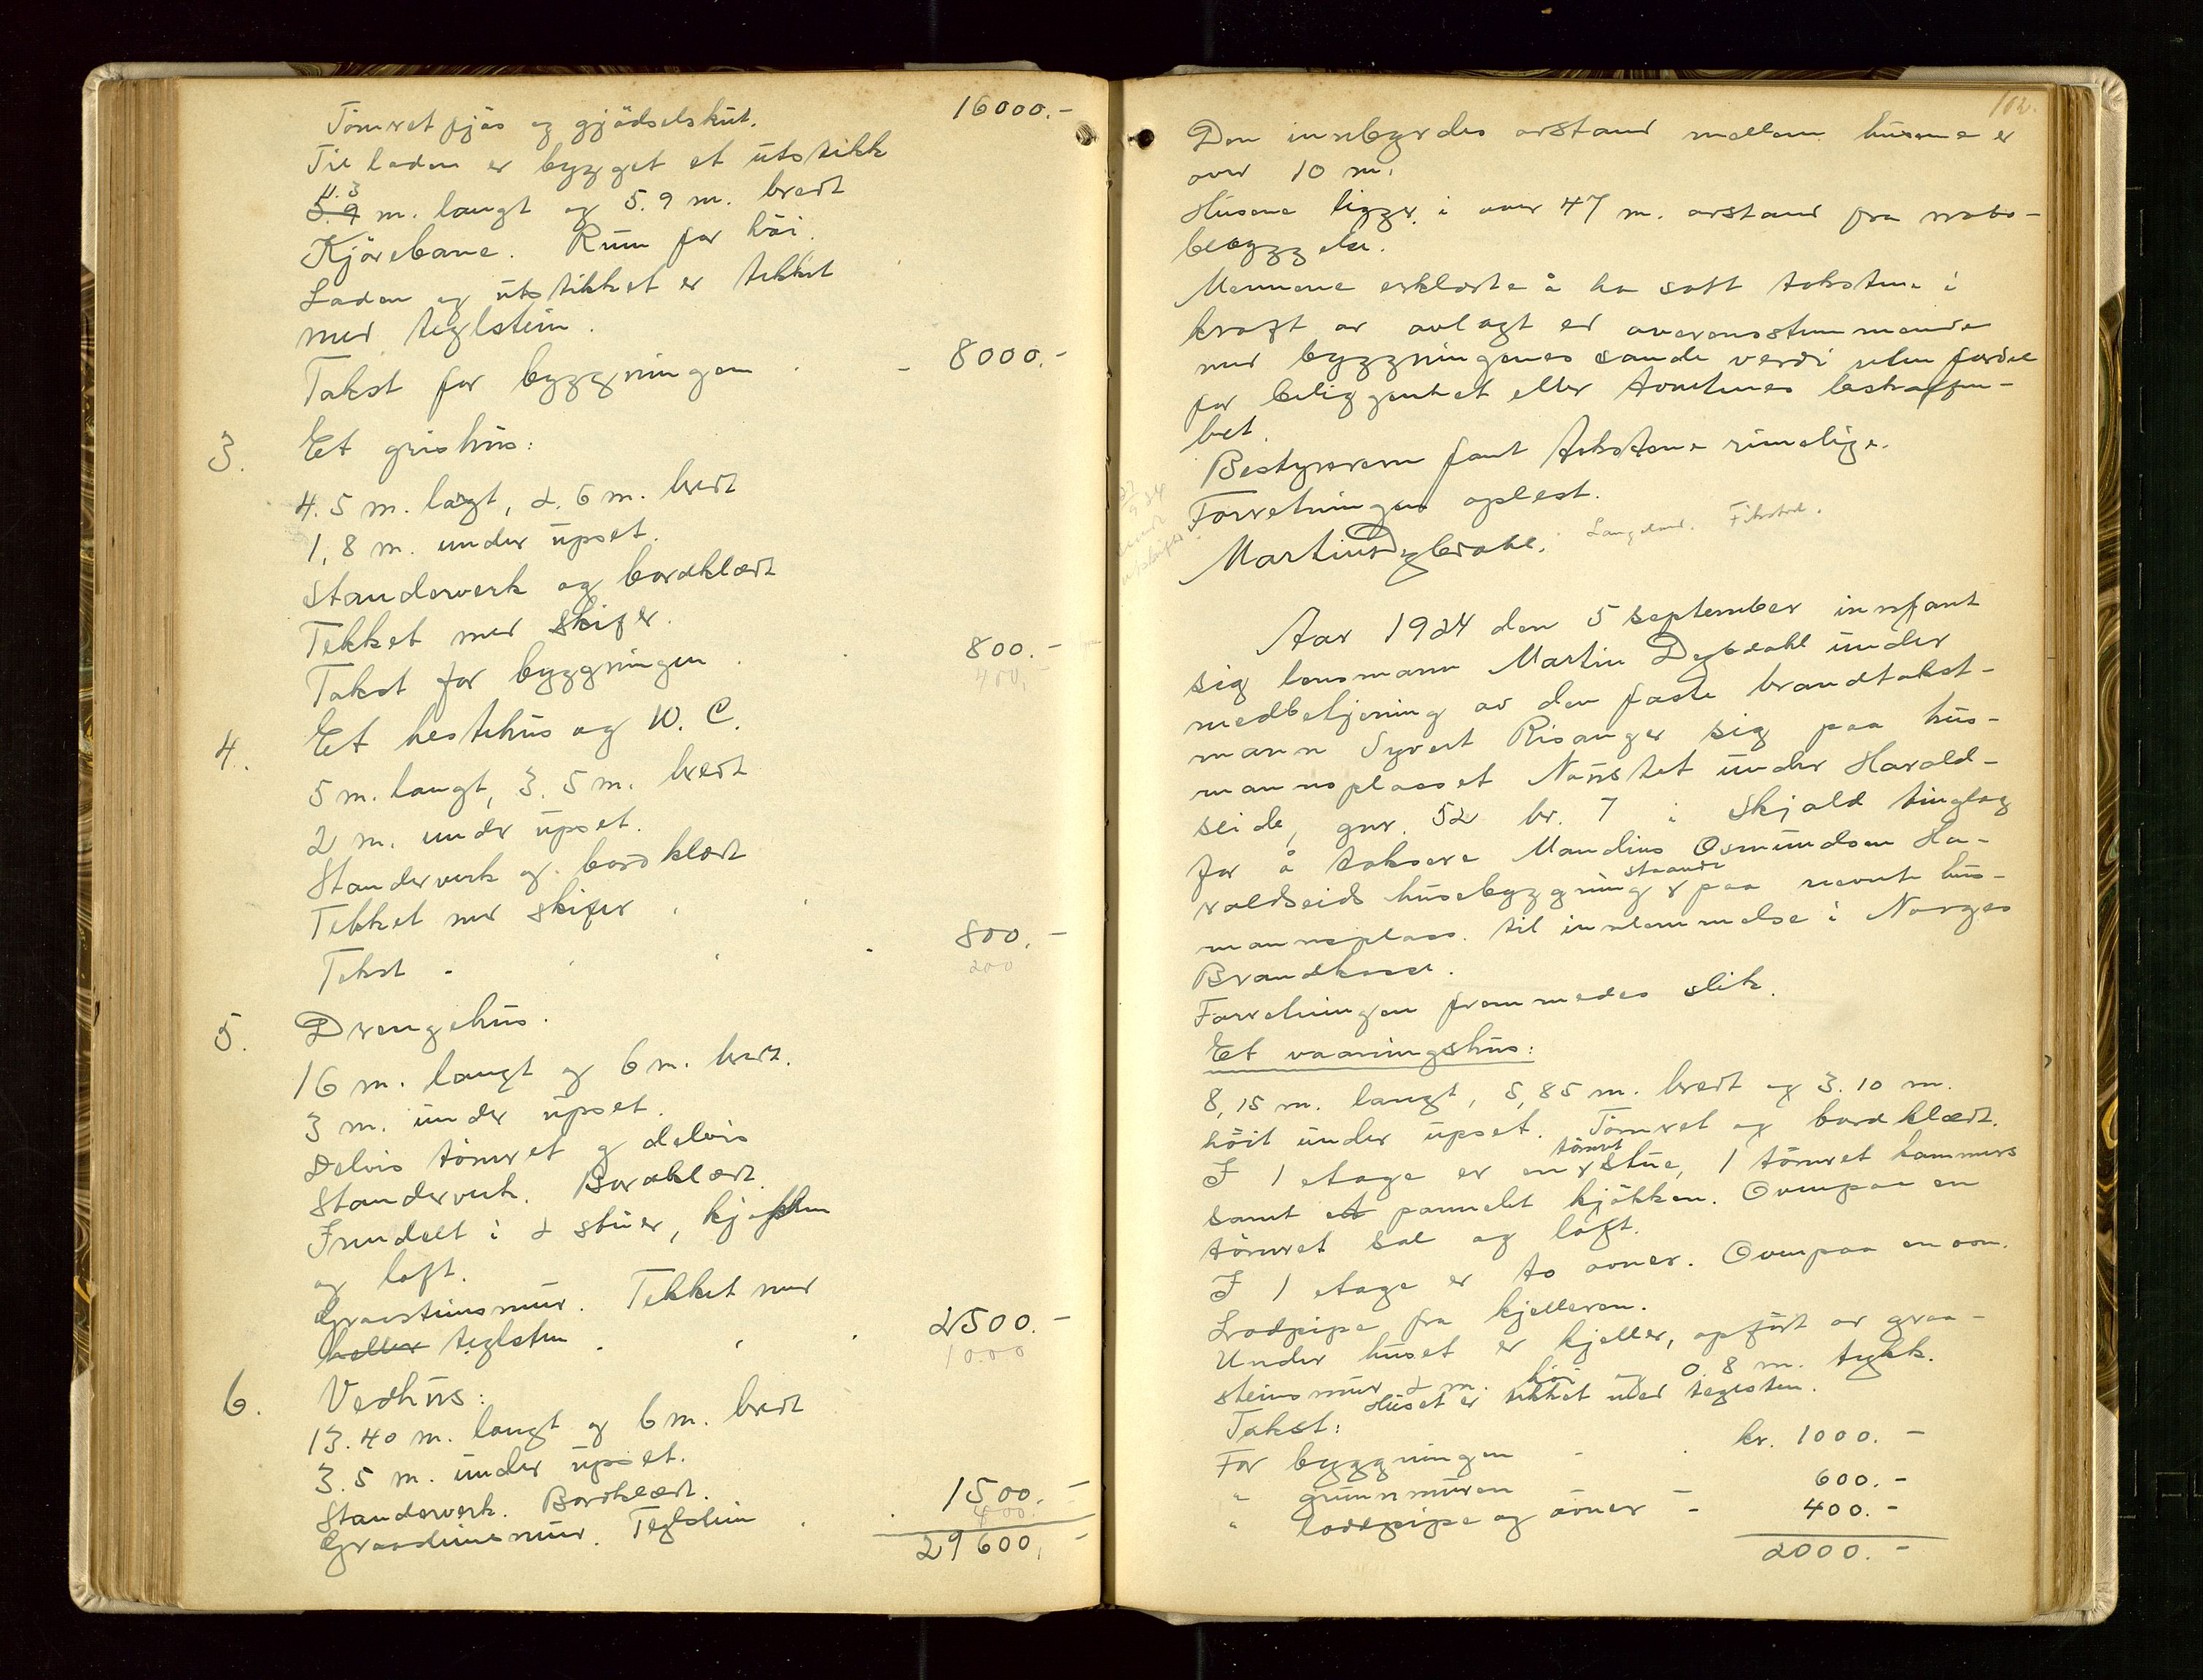 16000.-
Tömret fjös og gjödselskut.
Til laden er bygget et utstikk
11.3
5.9 m. langt og 5.9 m. bredt
Kjörebane. Rum for höi.
Laden og utstikket er tekket
med teglstein.
Takst for byggningen - 8000.-
3. Et grishus:
4.5 m. langt, 2.6 m. bredt
1,8 m. under upset.
Standerverk og bordklædt
Tekket med skifer.
Takst for byggningen 800.-
400.
4. Et hestehus og W. C.
5 m. langt, 3.5 m. bredt
2 m. under upset.
Standerverk og bordklædt
Tekket med skifer.
Takst - 800.-
200
5. Drengehus.
16 m. langt og 6 m. bredt.
3 m. under upset.
Delvis tömret og delvis
Standerverk. Bordklædt.
Inndelt i 2 stuer, kjökken
og loft.
Graasteinsmur. Tekket med
heller teglsten. 2500.-
1000
6. Vedhus:
13.40 m. langt og 6 m. bredt
3.5 m. under upset.
Standerverk. Bordklædt.
Graasteinsmur. Teglstein. 1500.-
400.
29600.-
102.
Den innbyrdes avstand mellem husene er
over 10 m.
Husene ligger i over 47 m. avstand fra nabo-
bebyggelse.
Mennene erklærte å ha satt takstene i
kraft av avlagt ed overensstemmende
med byggningenes sande verdi uten fordel
for beliggenhet eller tomtenes beskaffen-
het.
Bestyreren fant takstene rimelige.
Forretningen oplest.
Martin Dybdahl. Langeland. Fikstvet.
Aar 1924 den 5 september innfant
sig lensmann Martin Dybdahl under
medbetjening av den faste brandtakst-
mann Syvert Risanger sig paa hus-
mannsplasset Naustet under Harald-
seide, gnr. 52 br. 7 i Skjold tinglag
for å taksere Mandius Osmundsen Ha-
staande
raldseids husebyggning paa nevnte hus-
mannsplass til innlemmelse i Norges
Brandkasse.
Forretningen fremmedes slik.
Et vaaningshus:
8,15 m. langt, 5,85 m. bredt og 3.10 m.
höit under upset. Tömret og bordklædt.
tömret
I 1 etage er en stue, 1 tömret kammers
samt et pannelet kjökken. Ovenpaa en
tömret sal og loft.
I 1 etage er to ovner. Ovenpaa en ovn.
Lodpipe fra kjelleren.
Under huset er kjeller, opfört av graa-
steinsmur 2 m. höi og 0.8 m. tykk.
Huset er tekket med teglsten.
Takst:
For byggningen - kr. 1000.-
" grunnmuren 600.-
" lodpipe og ovner - 400.-
2000.-